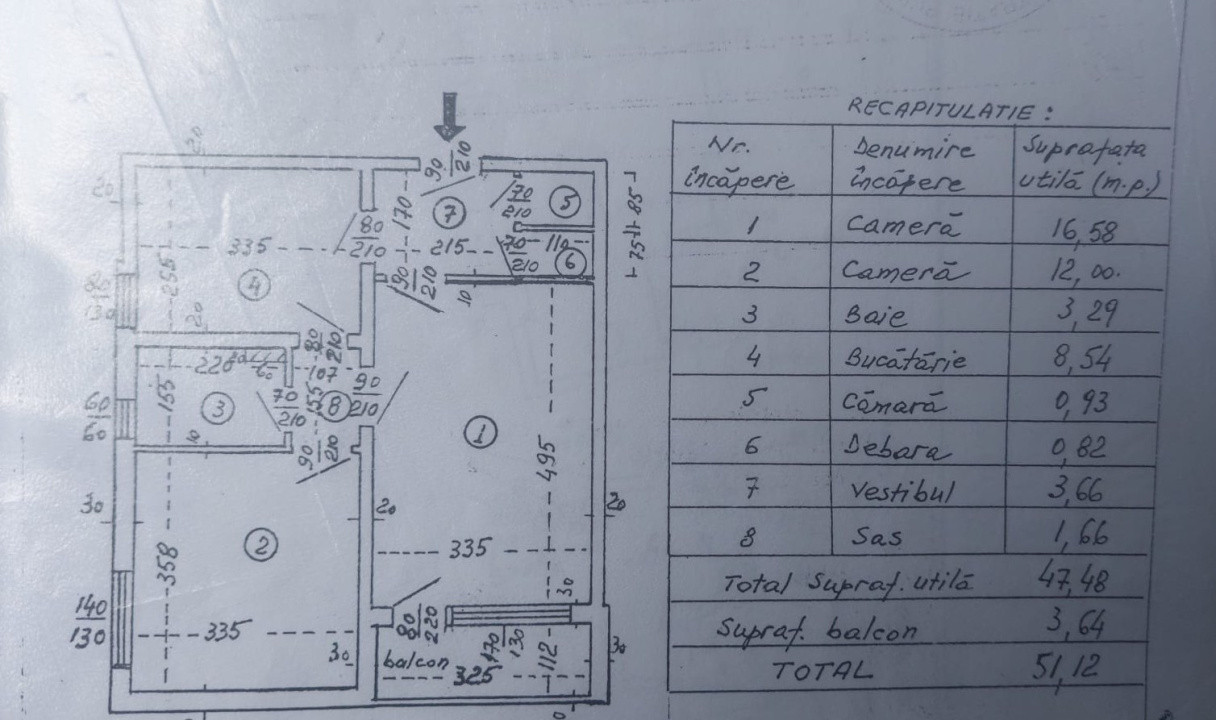 RECAPITULATIE :
Nr. încăpere Denumire încăpere Suprafata utilă (m.p.)
1 Cameră 16,58
2 Cameră 12,00.
3 Baie 3,29
4 Bucătărie 8,54
5 Cămară 0,93
6 Debara 0,82
7 Vestibul 3,66
8 Sas 1,66
Total Supraf. utilă 47,48
Supraf. balcon 3,64
TOTAL 51,12
20
90
210
20
170
7
70
210
5
85
335
80
210
215
70
210
110
6
75
255
4
90
210
10
80
130
20
80
210
220
60
107
155
3
70
210
155
8
90
210
60
60
10
90
210
1
495
30
20
20
2
335
358
140
130
335
30
80
220
30
balcon
170
130
112
30
325
30